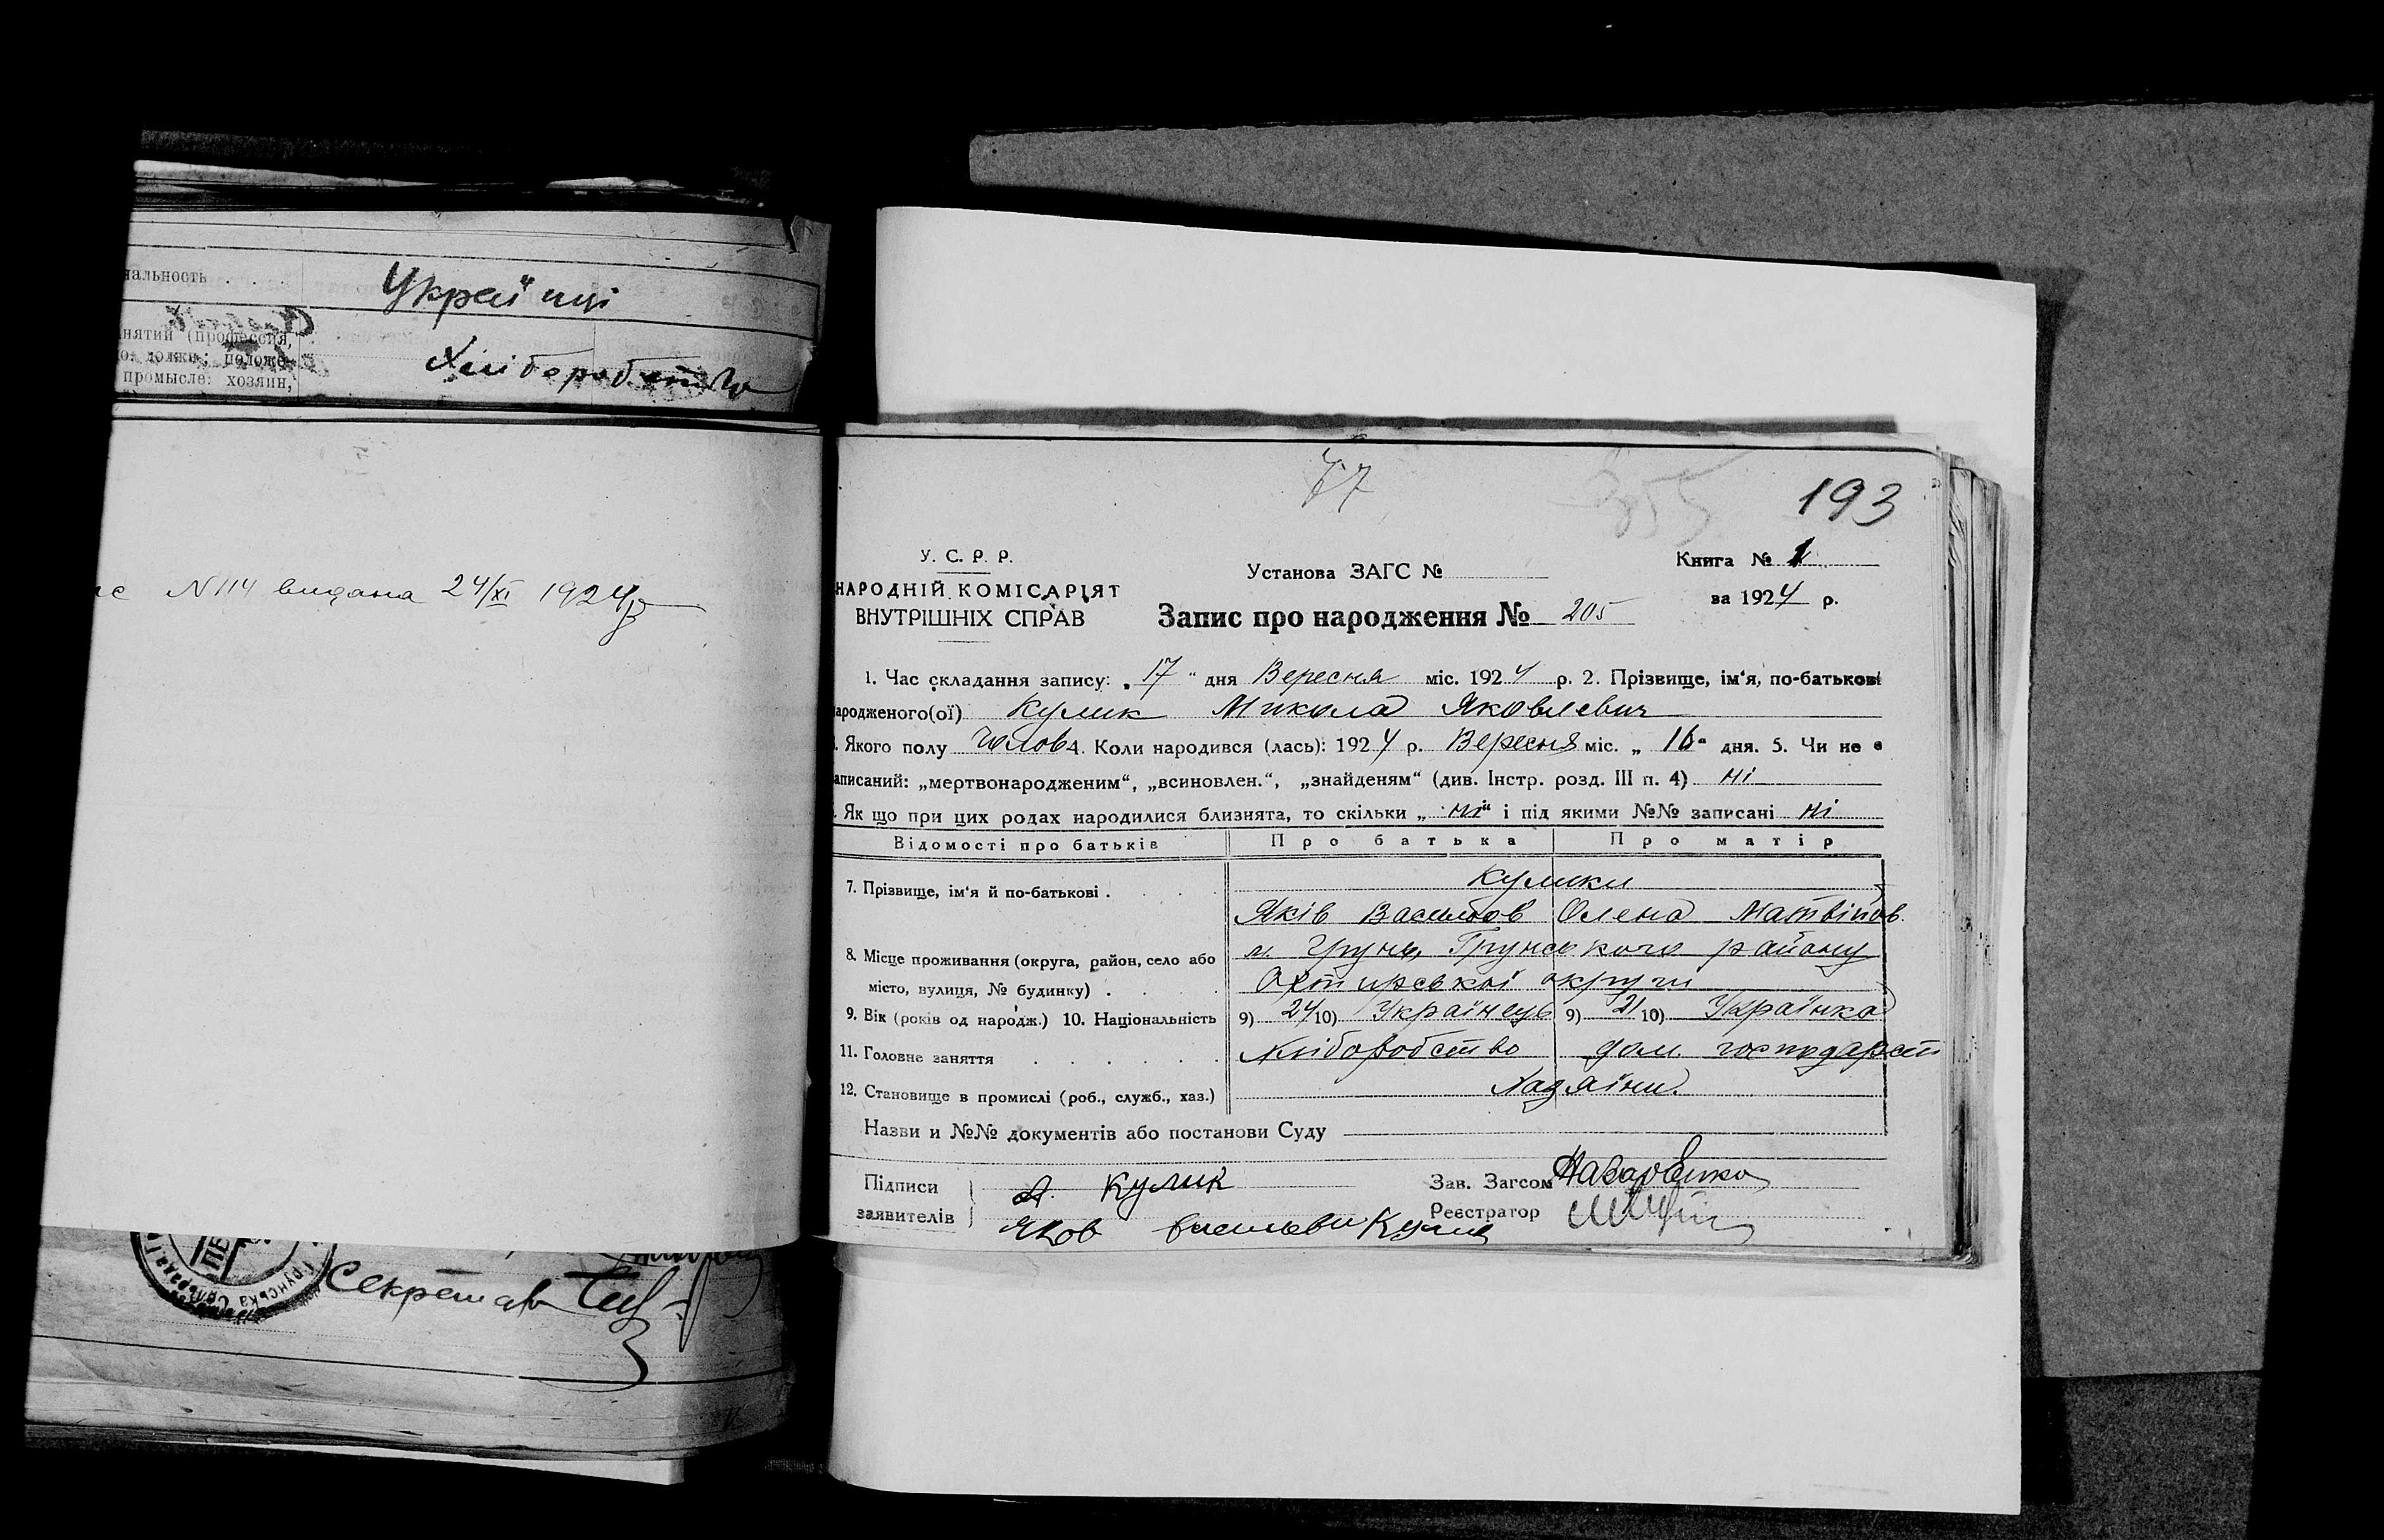 нальность . . . . Українці
нятий (профессия,
о. должн.; положе-
промысле: хозяин,
Хліборобство
N 114 видана 24/XI 1924 р
Грунська Сільрада
Секретар
77
355
193
У. С. Р. Р.
НАРОДНІЙ КОМІСАРІЯТ
ВНУТРІШНІХ СПРАВ
Установа ЗАГС №
Книга № 1
за 1924 р.
Запис про народження № 205
1. Час складання запису: „17" дня Вересня міс. 1924 р. 2. Прізвище, ім'я, по-батькові
ародженого(ої) Кулик Микола Яковлевич
. Якого полу Чолов 4. Коли народився (лась): 1924 р. Вересня міс. „16" дня. 5. Чи не є
аписаний: „мертвонародженим", „всиновлен.", „знайденям" (див. Інстр. розд. III п. 4) ні
. Як що при цих родах народилися близнята, то скільки „ні" і під якими №№ записані ні
Відомості про батьків Про батька Про матір
7. Прізвище, ім'я й по-батькові . Кулики
Яків Васильов Олена Матвійов.
8. Місце проживання (округа, район, село або
місто, вулиця, № будинку) .
м. Грунь, Грунського району
Охтирської округи
9. Вік (років од народж.) 10. Національність 9) 24 10) Українець 9) 21 10) Українка
11. Головне заняття Хліборобство дом. господарст
12. Становище в промислі (роб., служб., хаз.) Хазяїни.
Назви и №№ документів або постанови Суду
Підписи
заявителів
Кулик
Яков Василеви Кулик
Зав. Загсом Назаренко
Реєстратор